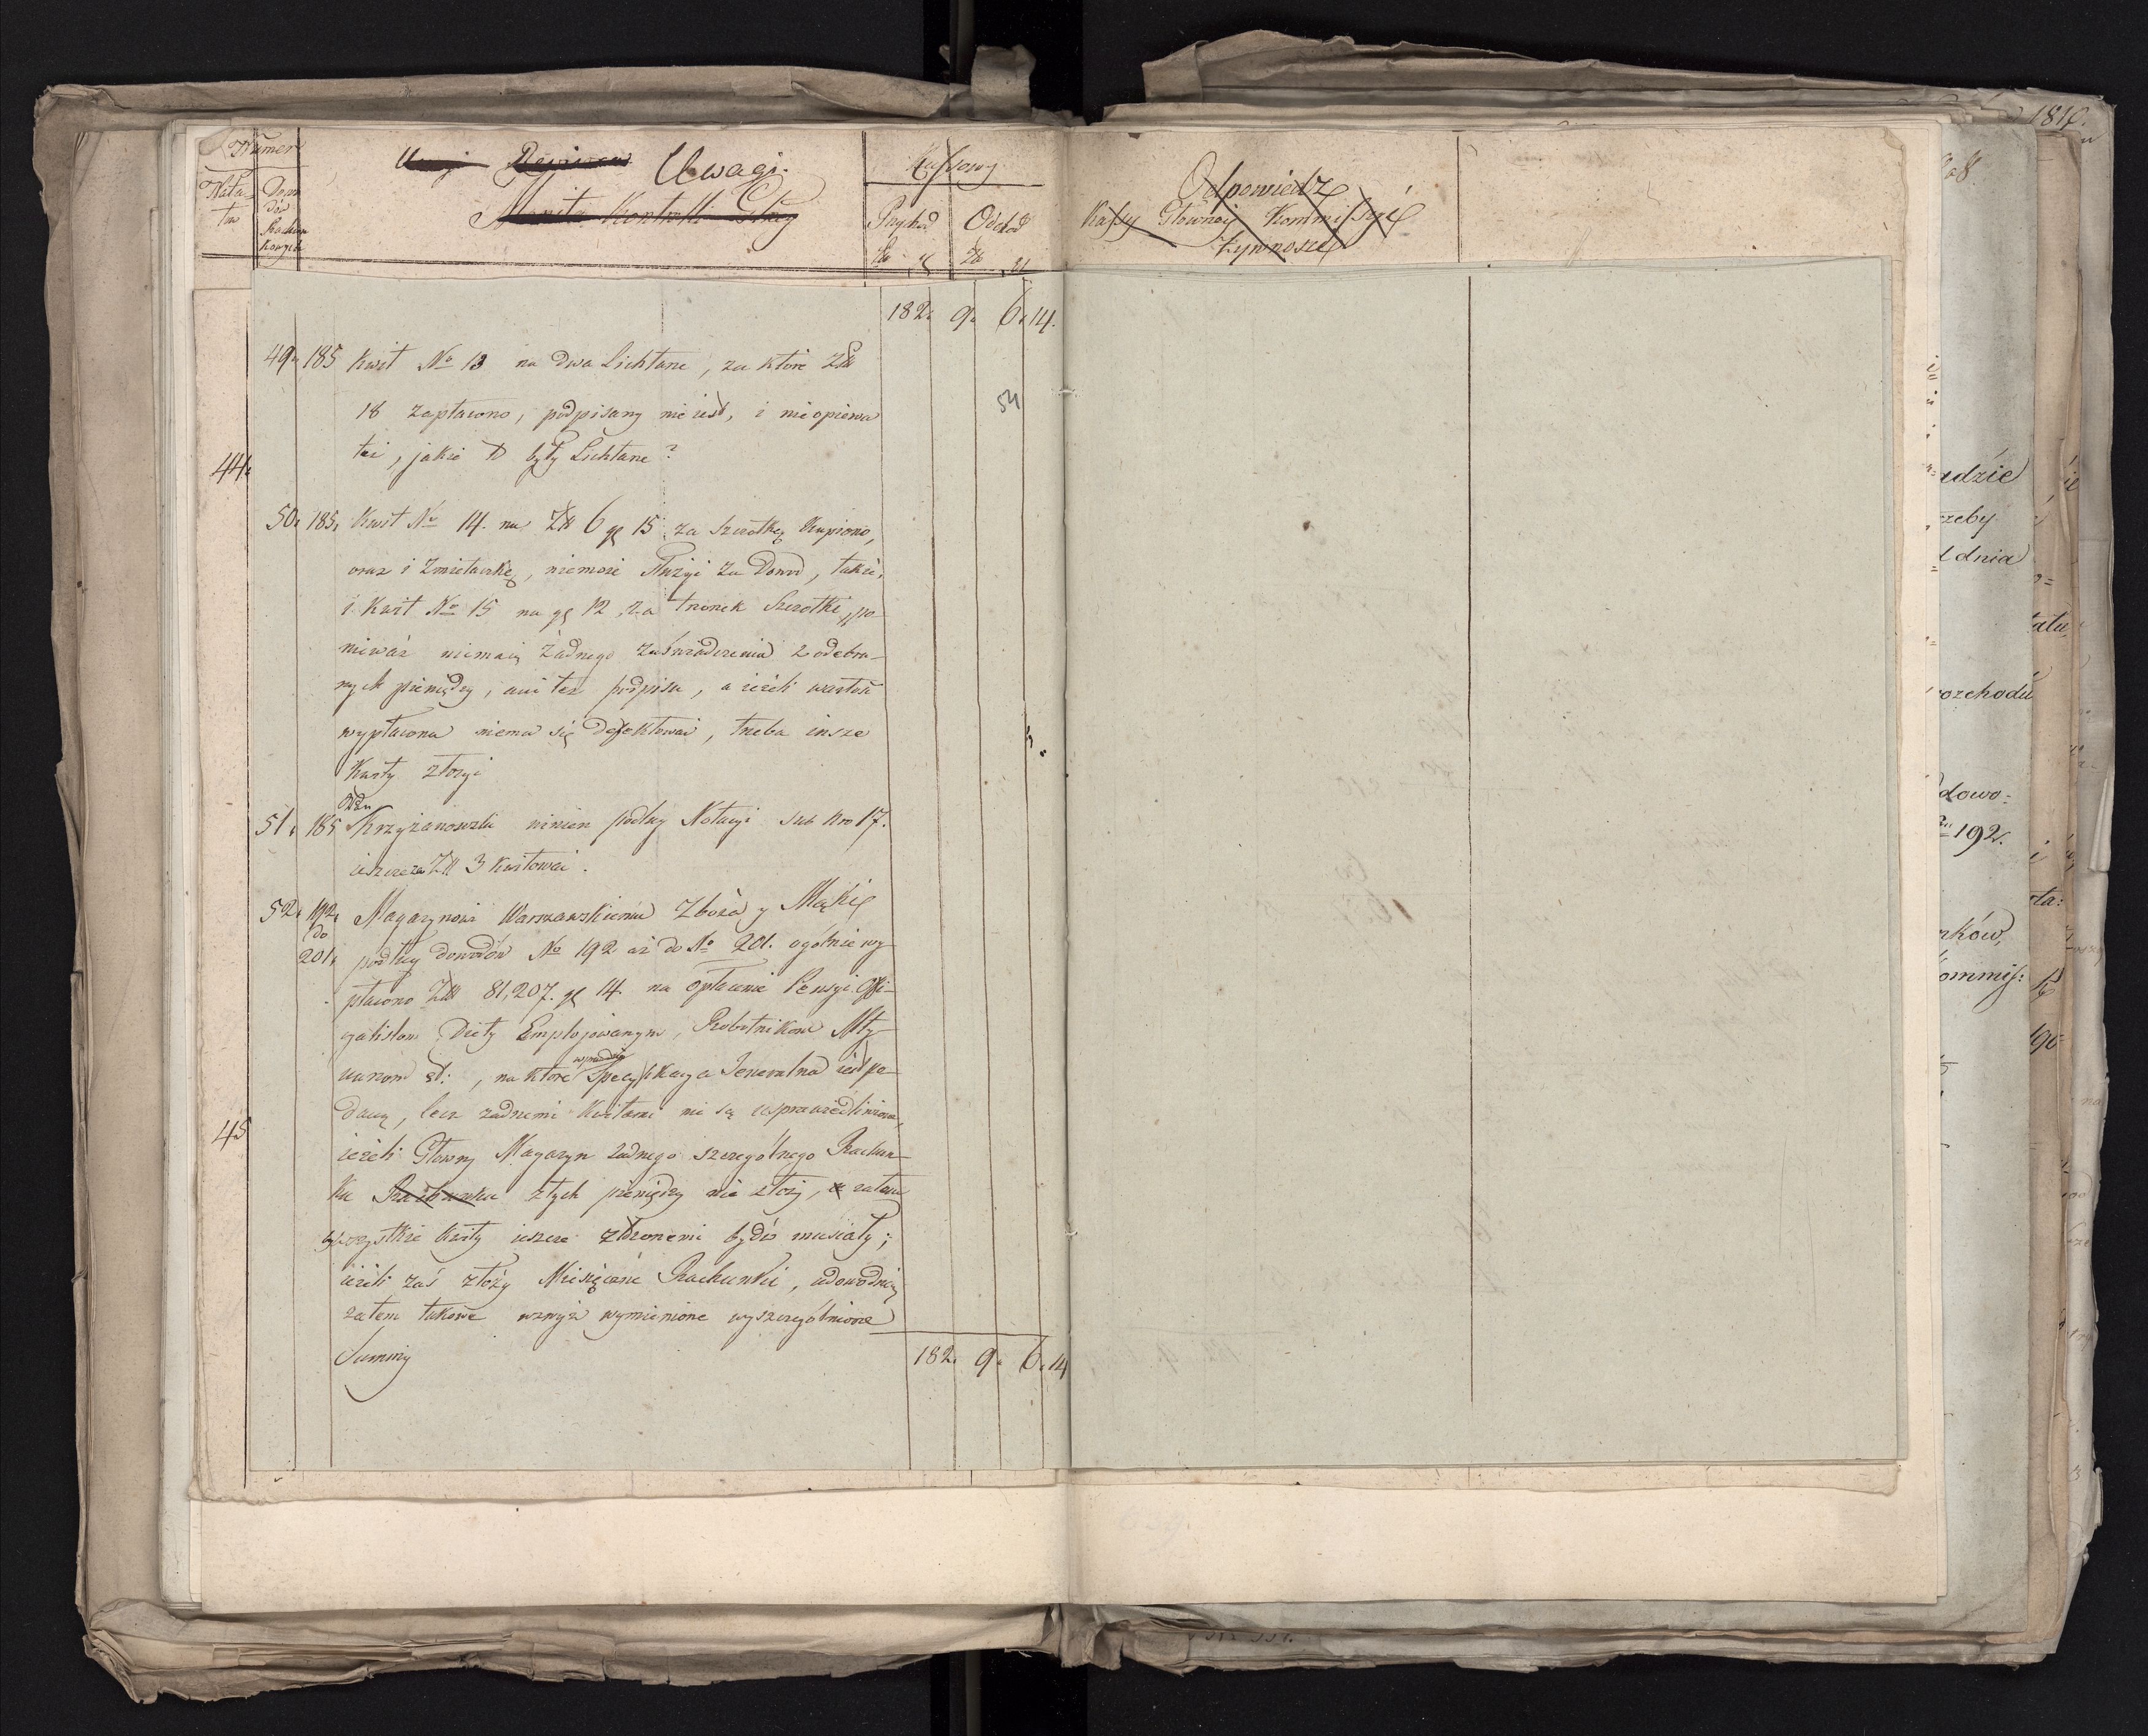 Numer
Uwagi.
Kassowy
Odpowiedz
Kassy Głownej Kommissyi
Żywnosci
Monita Kontrolli
Przychod Odchod
182. 9. 6. 14.
49. 185 Kwit No 13 na dwa Lichtarze, za które Złł
18 zapłacono, podpisany nie iest, i nie opiewa
też, jakie to były Lichtarze?
54
44.
50. 185. Kwit No 14. na Złł 6 gl 15 za Szczotkę kupioną,
oraz i Zmiotaczkę, niemoże służyć za Dowod, także
i Kwit No 15 na gl 12 za trzonek Szczotki, po-
nieważ niemaią żadnego zaświadczenia z odebra-
nych pieniędzy, ani też podpisu, a ieżeli wartość
wypłacona niema się defektować, trzeba insze
Kwity złożyć
51. 185 Krzyżanowski winien podług Notacyi sub Nro 17.
ieszcze za Złł 3 kwitować.
52. 192. Magazynowi Warszawskiemu Zboża y Mąki
do
201. podług dowodów No 192 aż do No 201. ogólnie wy-
płacono Złł 81,207. gl 14. na opłacenie Pensyi Offi-
cyalistom Diety Employowanym, Robotnikom Mły-
narzom et: , na które wprawdzie Specyfikacya Generalna iest po-
daną, lecz żadnemi Kwitami nie są usprawiedliwione,
45
ieżeli Głowny Magazyn żadnego szczególnego Rachun-
ku Rachunku z tych pieniędzy nie złoży, zatem
wszystkie kwity ieszcze złożonemi bydź musiały;
ieżeli zaś złoży Miesięczne Rachunki, udowodnią
zatem takowe wzwyż wymienione wyszczególnione
Summy
182. 9. 6. 14
1810.
adzie
rzeby
dnia
rozchodu
dowo:
192.
nków,
ommiss: